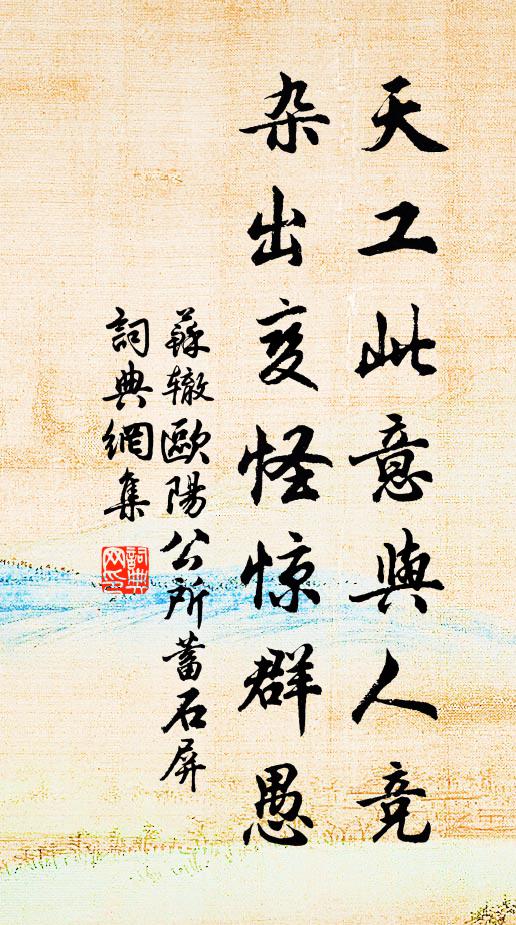 天工此意與人竞
杂出变怪惊群愚
蘇辙歐陽公所蓄石屏
詞典網集
詞典网印